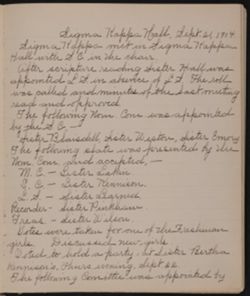 Sigma Kappa Hall, Sept. 21, 1904
Sigma Kappa met in Sigma Kappa
Hall with S. C. in the chair.
After scripture reading Sister Hall was
appointed L. D. in absence of L. D. The roll
was called and minutes of the last meeting
read and approved.
The following Nom. Com. was appointed
by the S. C. —
Sister Blaisdell, Sister Weston, Sister Emory
The following slate was presented by the
Nom. Com. and accepted, —
M. C. — Sister Lakin
S. C. — Sister Kennison.
L. D. — Sister Learned
Recorder — Sister Pinkham.
Treas — Sister Wilson.
Votes were taken for one of the Freshman
girls. Discussed new girls.
Voted to hold a party at Sister Bertha
Kennison's, Thurs. evening, Sept. 22.
The following Committee was appointed by